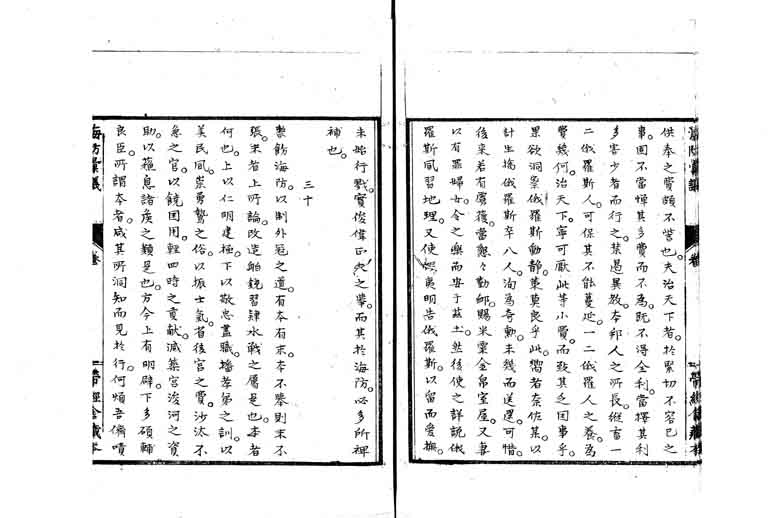 供奉之費頗不訾也夫治天下者於緊切不容已之
事固不當憚其多費而不為既不得全利當擇其利
多害少者而行之禁愚異教本邦人之所長縱畜一
二俄羅斯人可保其不能蔓延一二俄羅人之養為
費幾何治天下寧可厭此等小費而致其乏困事乎
果欲洞察俄羅斯動靜策莫良乎此嚮者奈佐某以
計生擒俄羅斯卒八人洵為奇勳未幾而送還可惜
後來若有虜獲當懇々勤郵賜米粟金帛室屋又妻
以有罪婦女令之樂而安于茲土然後使之詳說俄
羅斯風習地理又使蝦夷明告俄羅斯以留而愛撫
未始行戮實俊偉正大之舉而其於海防必多所裨
補也
三十
禦飭海防以制外寇之道有本有末本不舉則末不
張末者上所論改造舶銃習肄水戰之屬是也本者
何也上以仁明建極下以敬忠盡職播孝弟之訓以
美民風崇勇鷙之俗以振士氣省後宮之費沙汰不
急之官以饒國用輕四時之貢獻減築宮浚河之資
助以蘓息諸侯之類是也方今上有明辟下多碩輔
良臣所謂本者咸其所洞知而見於行何煩吾儕嘖
海防彙議
卷